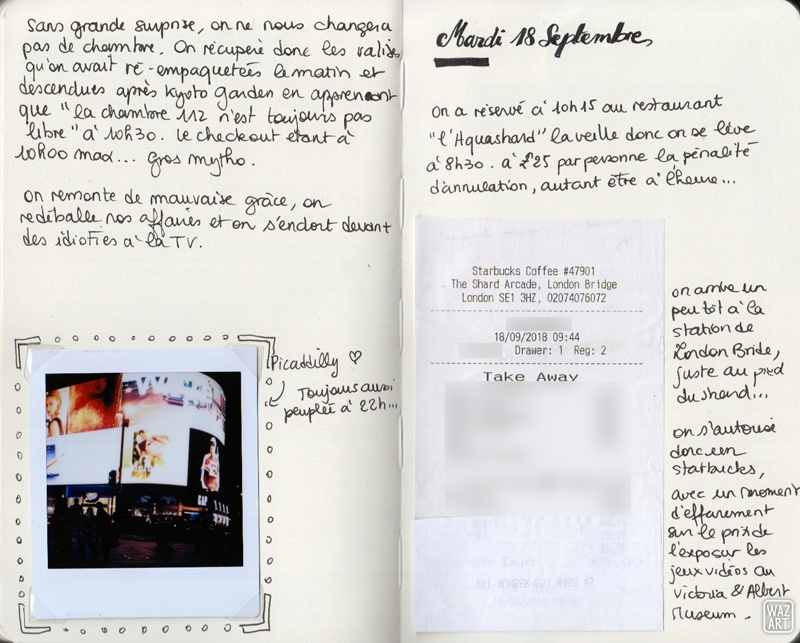 Sans grande surprise, on ne nous changera
pas de chambre. On récupère donc les valises
qu'on avait ré-empaquetées le matin et
descendues après Kyoto garden en apprenant
que "la chambre 112 n'est toujours pas
libre" à 10h30. Le checkout étant à
10h00 max... gros mytho.
On remonte de mauvaise grâce, on
redéballe nos affaires et on s'endort devant
des idioties à la TV.
Picaddilly ♡
Toujours aussi
peuplée à 22h...
GAP
Mardi 18 Septembre
On a réservé à 10h15 au restaurant
"l'Aquashard" la veille donc on se lève
à 8h30. à £25 par personne la pénalité
d'annulation, autant être à l'heure...
Starbucks Coffee #47901
The Shard Arcade, London Bridge
London SE1 3HZ, 02074076072
18/09/2018 09:44
Drawer: 1 Reg: 2
Take Away
on arrive un
peu tôt à la
station de
London Bride,
juste au pied
du shard...
on s'autorise
donc un
starbucks,
avec un moment
d'effarement
sur le prix de
l'expo sur les
jeux vidéos au
Victoria & Albert
Museum.
WAZ
ART